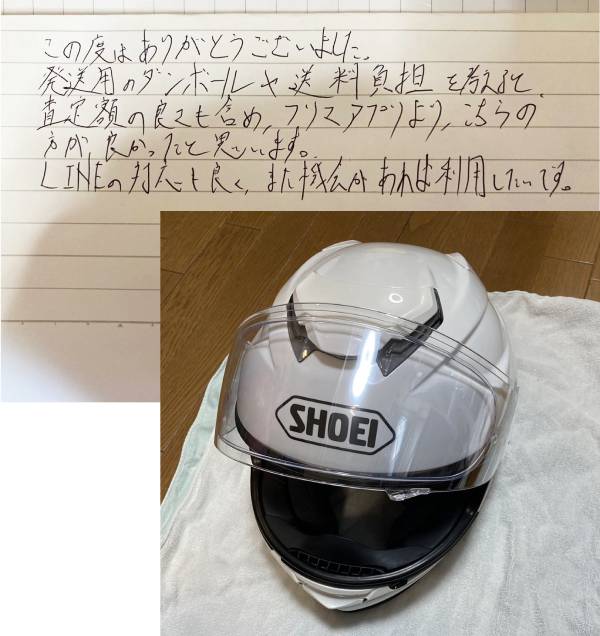 この度はありがとうございました。
発送用のダンボールや送料負担を考えると、
査定額の良さも含め、フリマアプリより、こちらの
方が良かったと思います。
LINEの対応も良く、また機会があれば利用したいです。
SHOEI